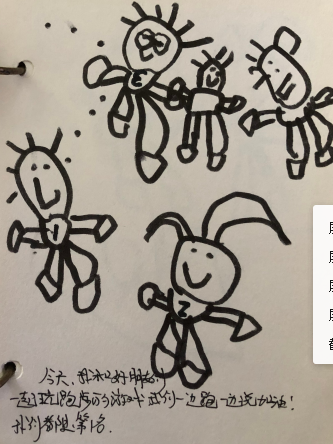 3
1
2
今天,我和好朋友们
一起玩跑步的游戏 我们一边跑一边说加油!
我们都是第1名.